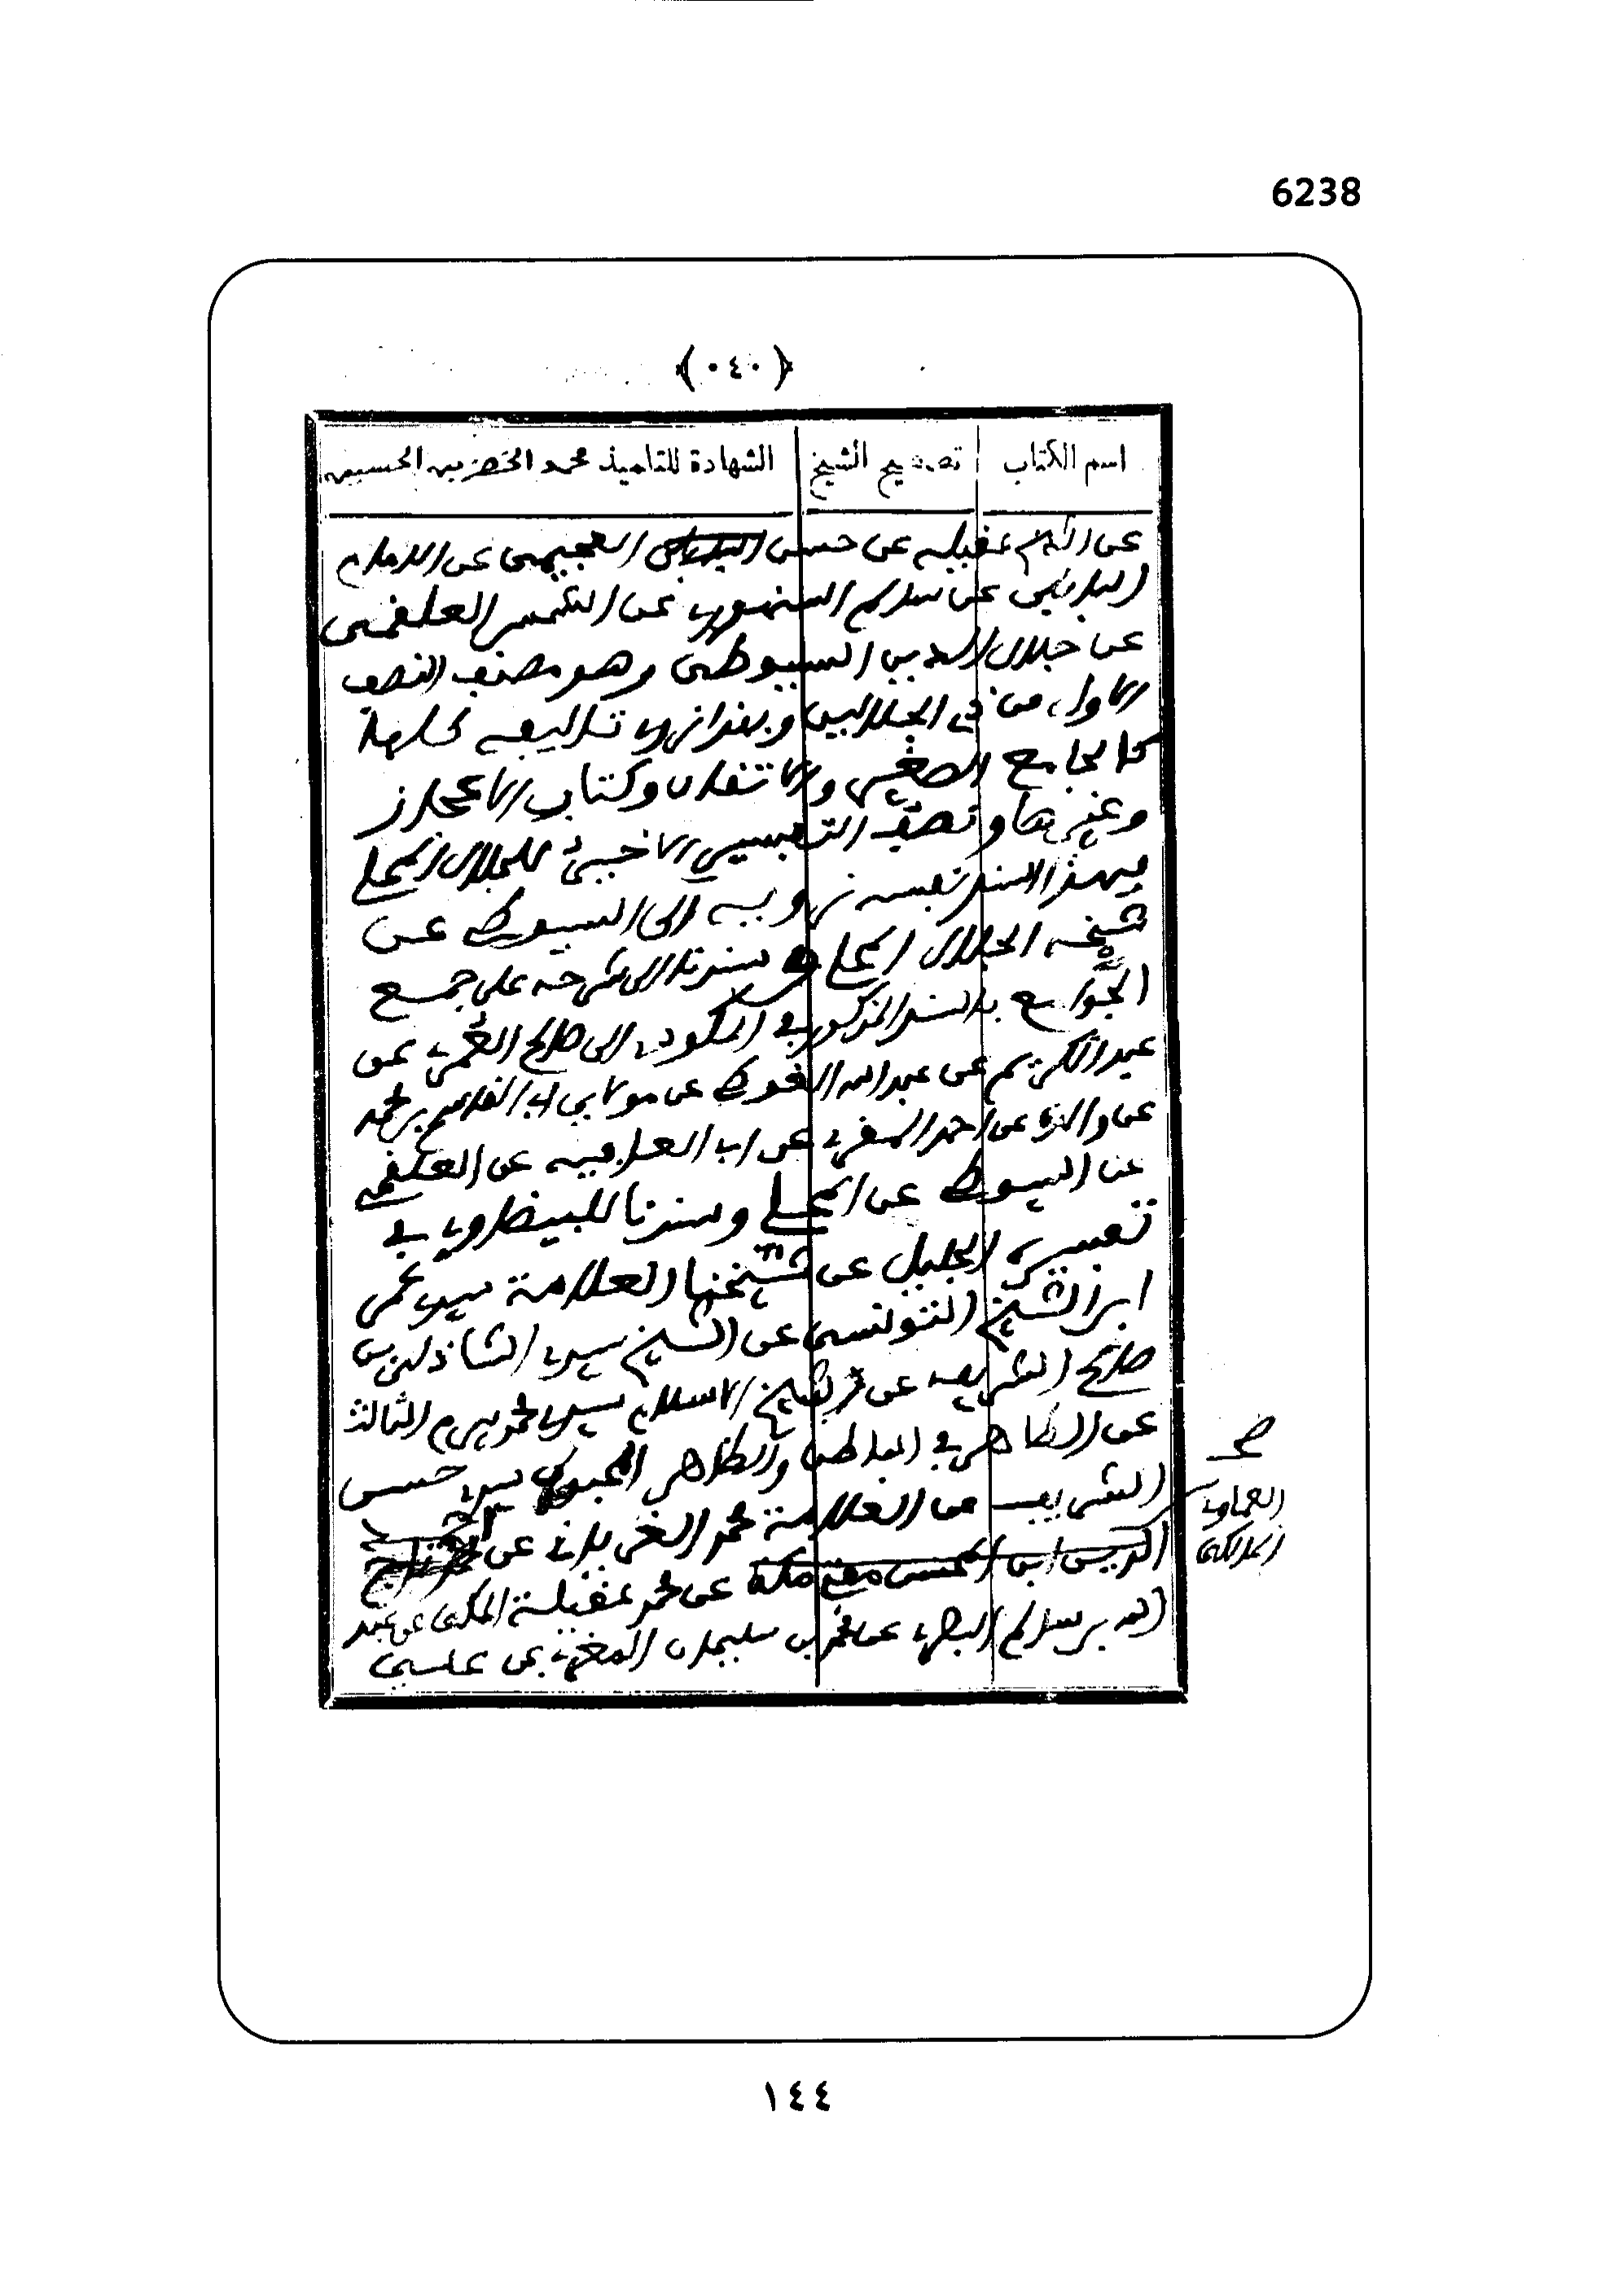 6238
(٠٤٠)
اسم الكتاب تصحيح الشيخ الشهادة للتلميذ محمد الخضر بن الحسين
عن عقيله عن حسن العجيمي عن الامام
البابلي عن سالم السنهوري عن الشمس العلقمي
عن جلال الدين السيوطي وهو مصنف النصف
الاول من ذي الجلالين وبهذا نروي تئاليفه كلها
كالجامع الصغير والاتقان وكتاب الاعجاز
وغيرها ونصف التفسير الاخير للجلال المحلي
بهذا السند نفسه نرويه الى السيوطي عن
شيخه الجلال المحلي وسندنا الى شرحه على جمع
الجوامع بالسند المذكور في المكودي الى صالح العمري عن
عبد الكريم عن عبد الله عن مولاي ابي القاسم بن محمد
عن والده عن احمد المقري عن ابي العافيه عن العلقمي
عن السيوطي عن المحلي وسندنا للبيضاوي في
تفسيره الجليل عن شيخنا العلامة سيدي عمر
ابن الشيخ التونسي عن الشيخ سيدي الشاذلي بن
صالح الشريف عن شيخ الاسلام سيدي محمد بيرم الثالث
عن الطاهر في الباطن والظاهر سيدي حسن
الشريف عن العلامة محمد الغرياني عن
عن محمد عقيلة المكي عن عبد
الله بن سالم البصري عن محمد بن سليمان المغربي عن علي
صح
المالكي
١٤٤